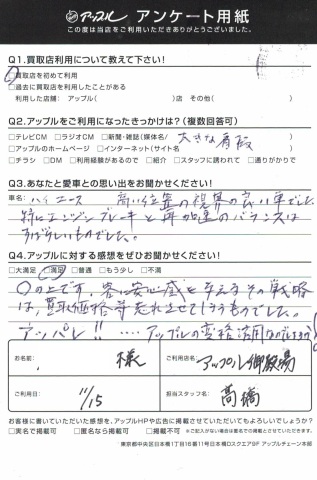 アップル アンケート用紙
この度は当店をご利用いただきありがとうございました。
Q1.買取店利用について教えて下さい!
□買取店を初めて利用
□過去に買取店を利用したことがある
利用した店舗: アップル( )店 その他( )
Q2.アップルをご利用になったきっかけは?(複数回答可)
□テレビCM □ラジオCM □新聞・雑誌(媒体名/ 大きな看板
□アップルのホームページ □インターネット(サイト名 )
□チラシ □DM □利用経験があるので □紹介 □スタッフに誘われて □通りがかりで
Q3.あなたと愛車との思い出をお聞かせください!
車名: ハイエース 高い位置の視界の良い車でした。
特にエンジンブレーキと再加速のバランスは
すばらしいものでした。
Q4.アップルに対する感想をぜひお聞かせください!
□大満足 □満足 □普通 □もう少し □不満
○の上です。客に安心感を与えるその戦略
は、買取価格等忘れさせてしまうものでした。
アッパレ!! ‥‥ アップルの変格活用なのでしょうか
お名前: 様
ご利用店名: アップル御殿場
ご利用日: 11/15
担当スタッフ名: 高橋
お客様に書いていただいた感想を、アップルHPや広告に掲載させていただいてもよろしいでしょうか?
□実名で掲載可 □匿名なら掲載可 □掲載不可 ※ご記入がない場合は匿名での掲載とさせていただきます。
東京都中央区日本橋1丁目16番11号日本橋Dスクエア9F アップルチェーン本部